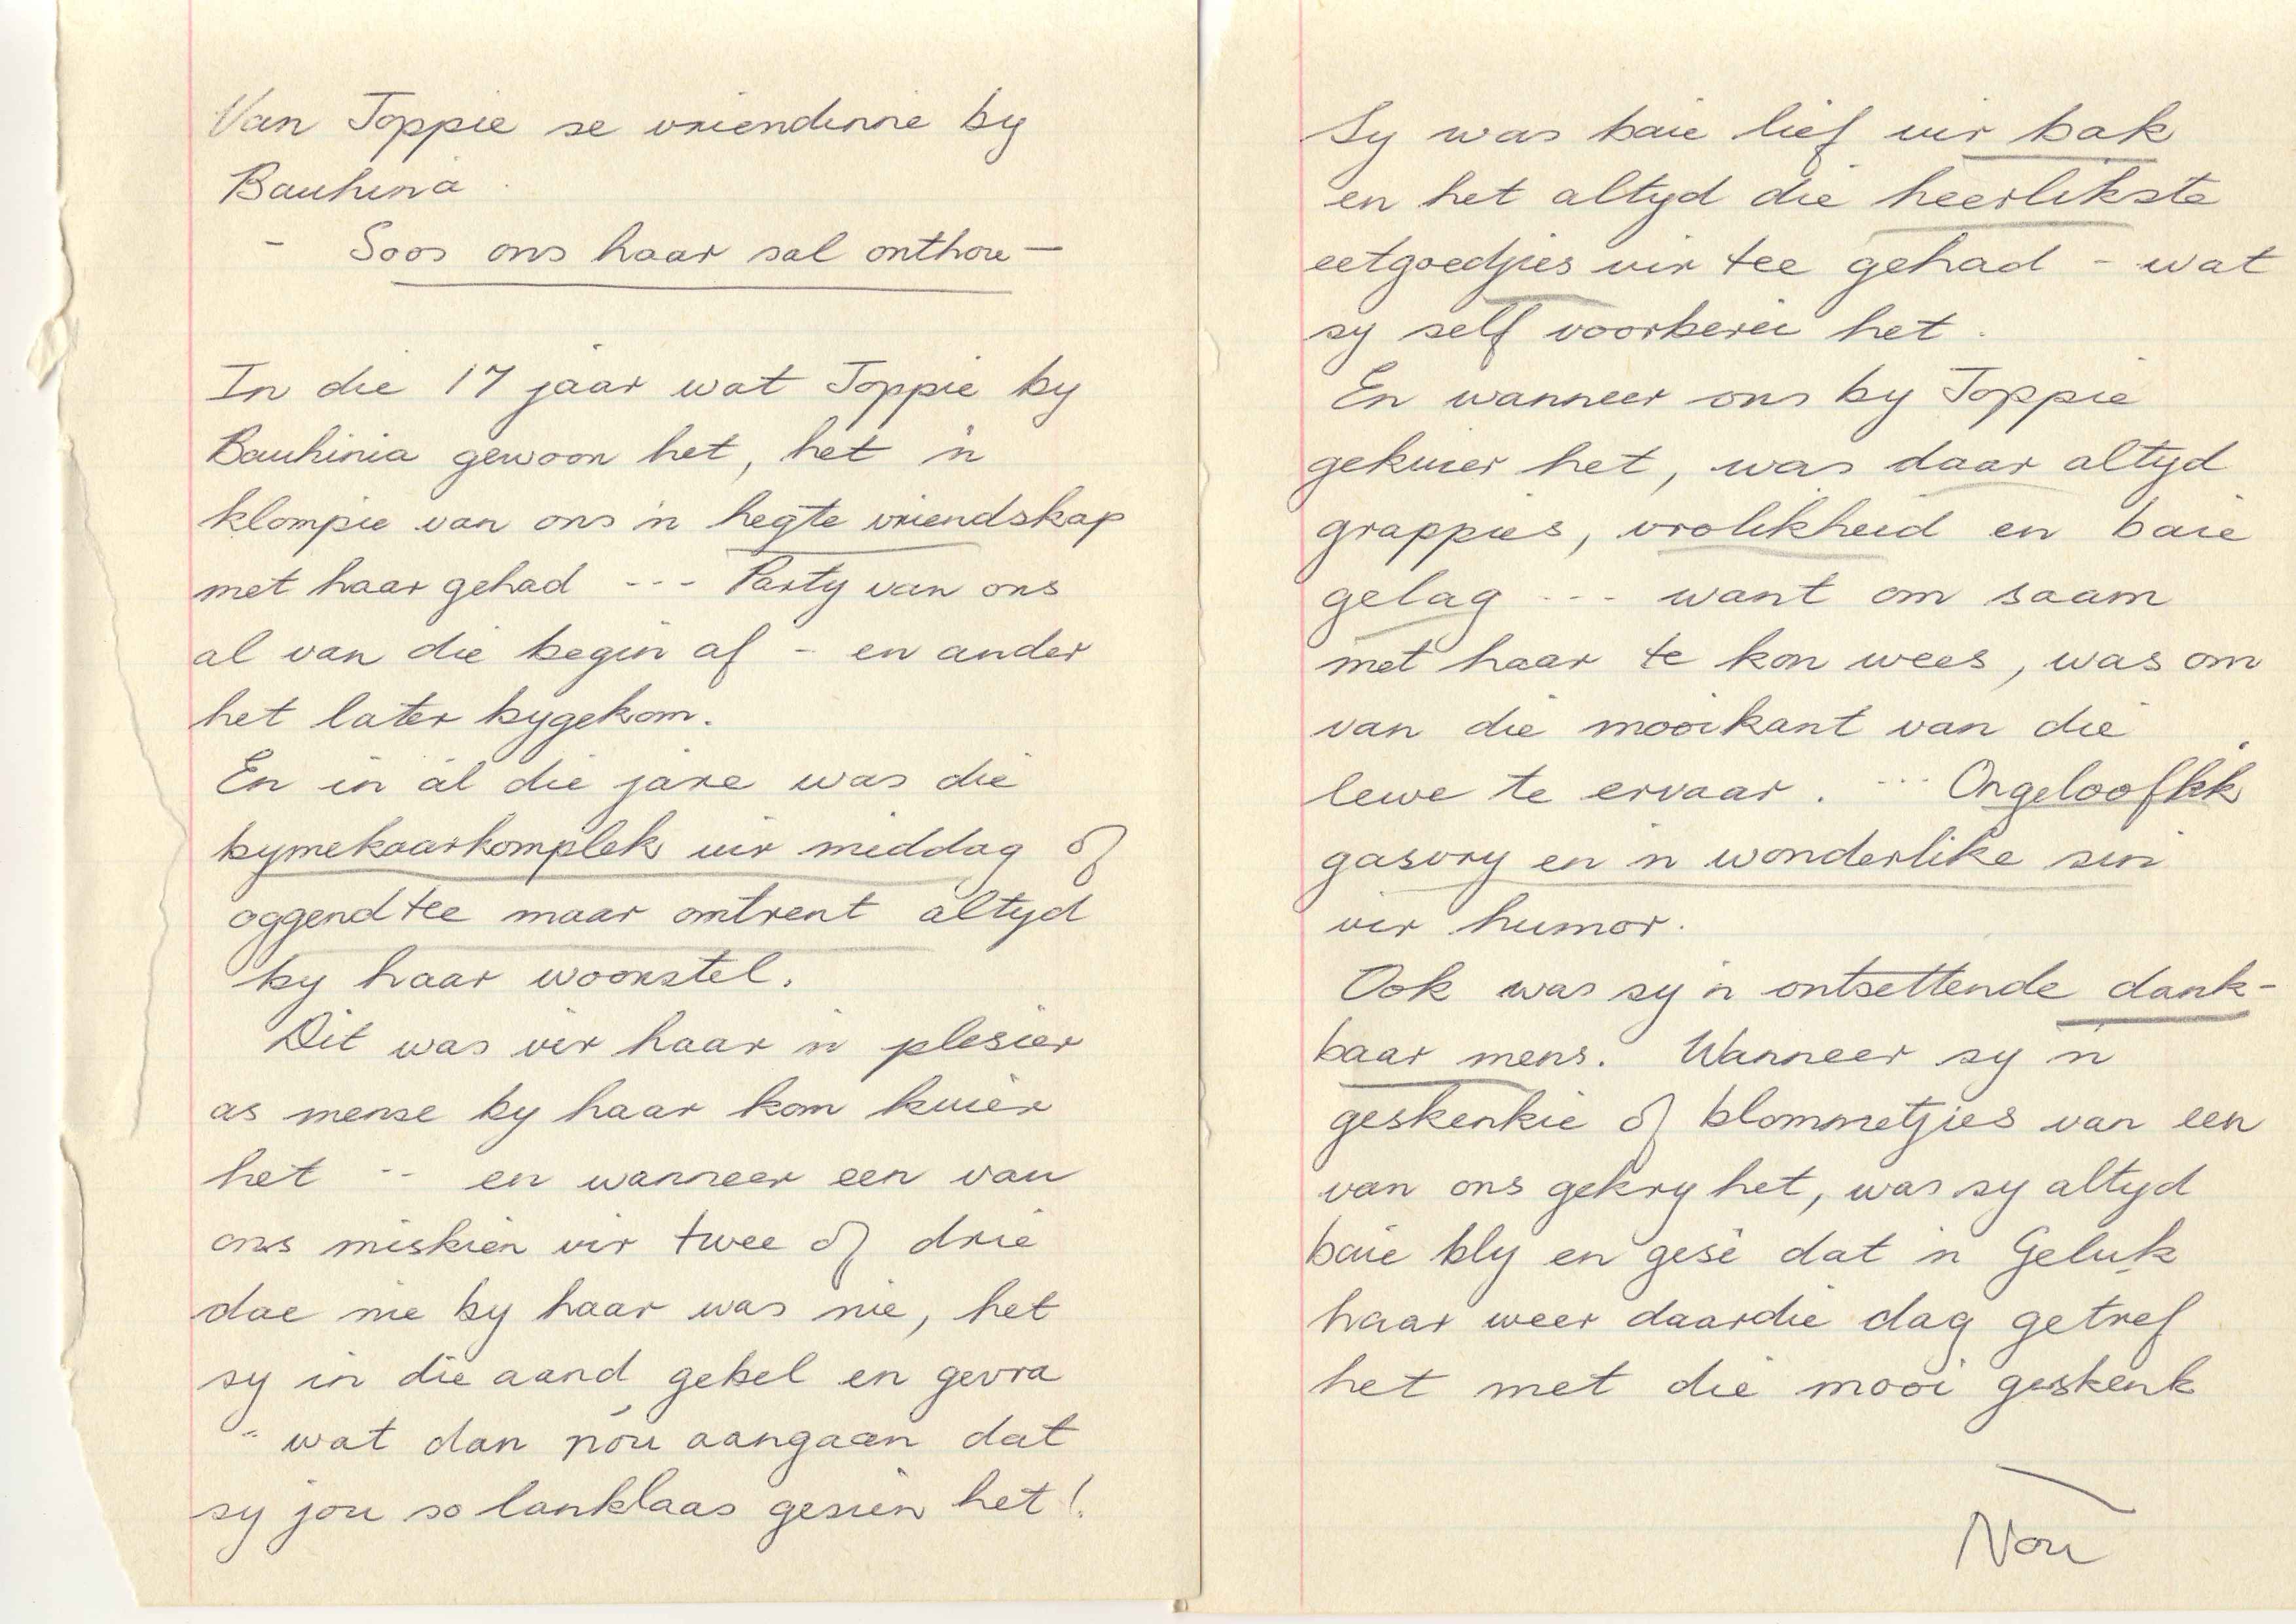 Van Joppie se vriendinne by
Bauhina.
- Soos ons haar sal onthou -
In die 17 jaar wat Joppie by
Bauhinia gewoon het, het 'n
klompie van ons 'n hegte vriendskap
met haar gehad --- Party van ons
al van die begin af - en ander
het later bygekom.
En in ál die jare was die
bymekaarkomplek vir middag of
oggendtee maar omtrent altyd
by haar woonstel.
Dit was vir haar 'n plesier
as mense by haar kom kuier
het -- en wanneer een van
ons miskien vir twee of drie
dae nie by haar was nie, het
sy in die aand gebel en gevra
" wat dan nóu aangaan dat
sy jou so lanklaas gesien het!
Sy was baie lief vir bak
en het altyd die heerlikste
eetgoedjies vir tee gehad - wat
sy self voorberei het.
En wanneer ons by Joppie
gekuier het, was daar altyd
grappies, vrolikheid en baie
gelag --- want om saam
met haar te kon wees, was om
van die mooikant van die
lewe te ervaar. --- Ongelooflik
gasvry en 'n wonderlike sin
vir humor.
Ook was sy 'n ontsettende dank-
baar mens. Wanneer sy 'n
geskenkie of blommetjies van een
van ons gekry het, was sy altyd
baie bly en gesê dat 'n Geluk
haar weer daardie dag getref
het met die mooi geskenk
Nou